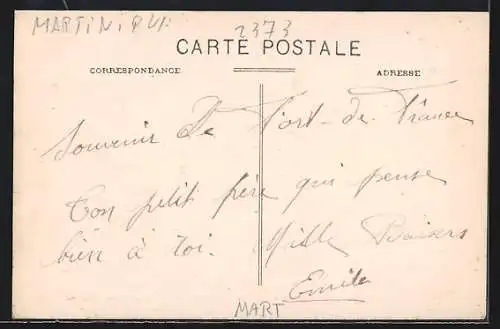 MARTINIQUE
2373
CARTE POSTALE
CORRESPONDANCE
ADRESSE
Souvenir de Fort-de-France
Ton petit frère qui pense
bien à toi. Mille Baisers
Emile
MART